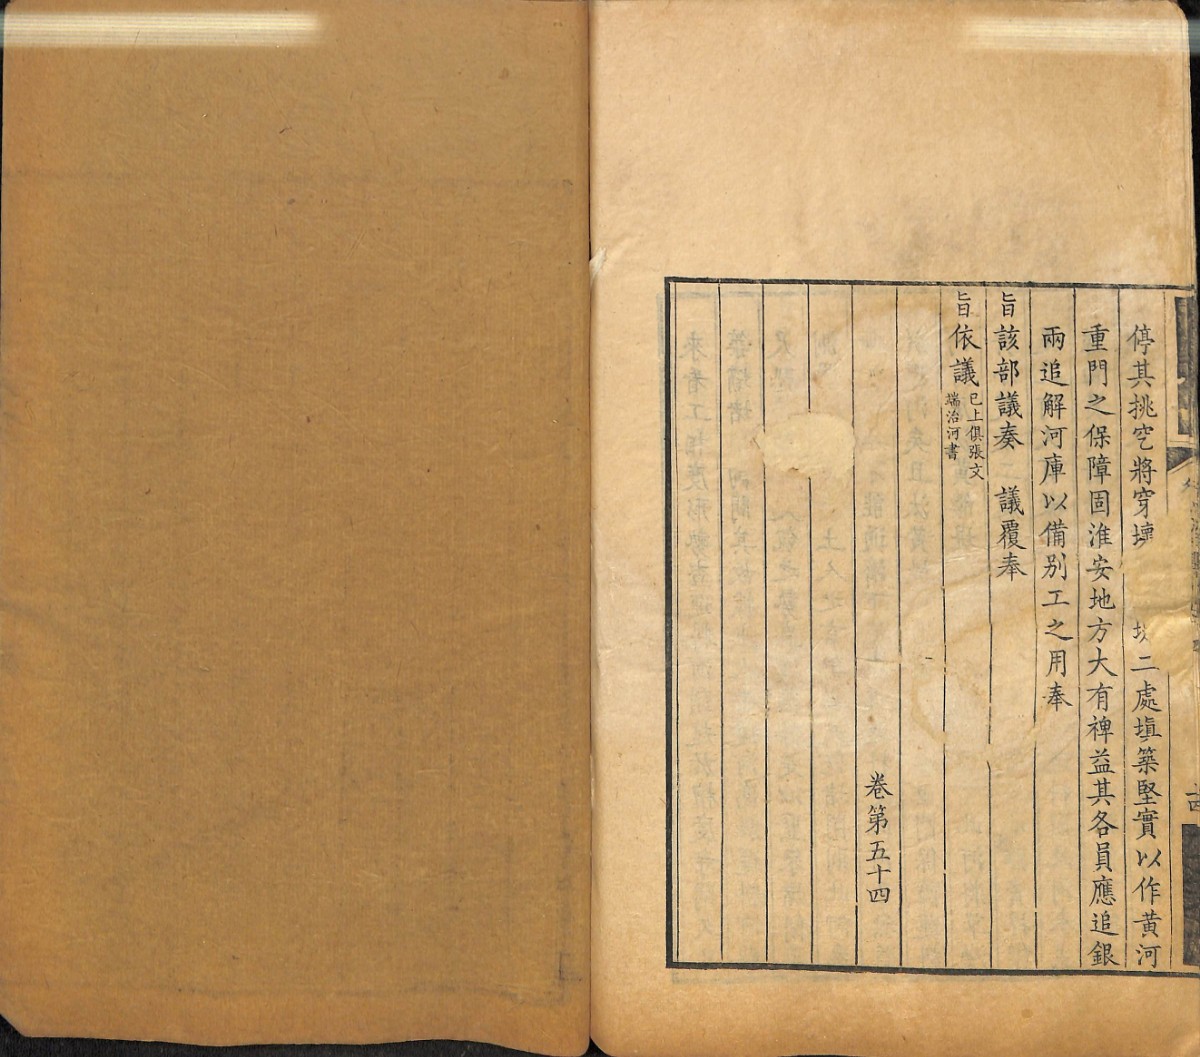 停其挑空將穿壞二處塡築堅實以作黄河
重門之保障固淮安地方大有裨益其各員應追銀
兩追解河庫以備别工之用奉
旨該部議奏 議覆奉
旨依議
已上俱張文
端治河書
卷第五十四